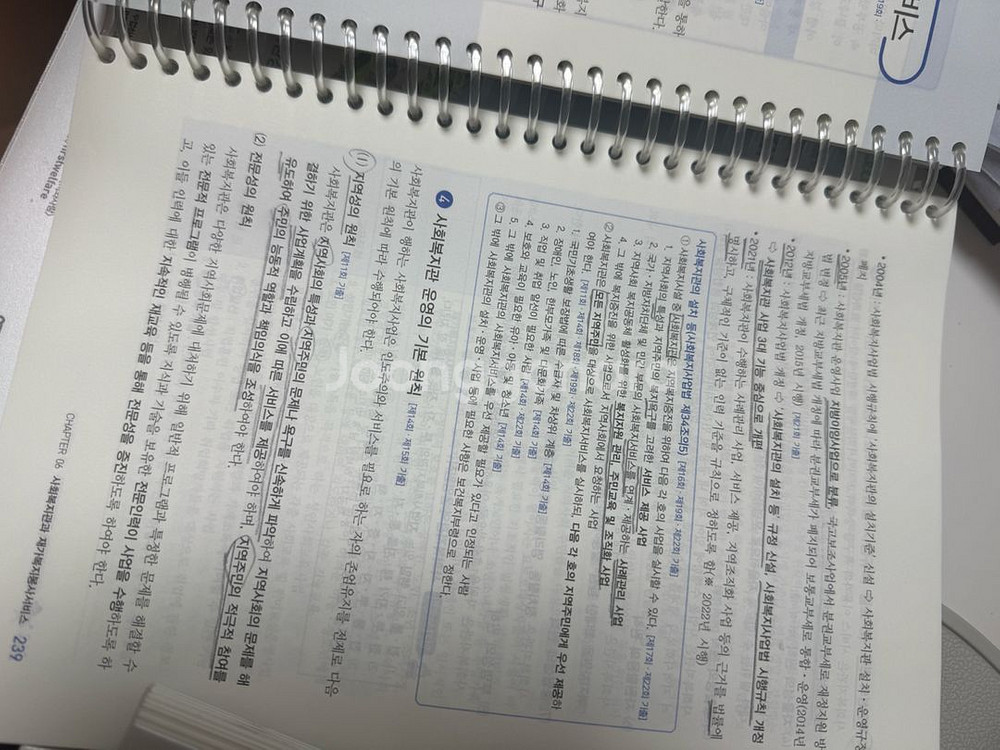 • 2004년 : 사회복지사업법 시행규칙에 '사회복지관의 설치기준' 신설 ⇨ 사회복지관 설치 · 운영규정
폐지
• 2005년 : 사회복지관 운영사업 지방이양사업으로 분류, 국고보조사업에서 분권교부세로 재정지원 방
법 변경 ⇨ 최근 지방교부세법 개정에 따라 분권교부세가 폐지되어 보통교부세로 통합 · 운영(2014년
지방교부세법 개정, 2015년 시행) [제21회 기출]
• 2012년 : 사회복지사업법 개정 ⇨ 사회복지관의 설치 등 규정 신설, 사회복지사업법 시행규칙 개정
⇨ 사회복지관 사업 3대 기능 중심으로 개편
• 2021년 : 사회복지관이 수행하는 사례관리 사업, 서비스 제공, 지역조직화 사업 등의 근거를 법률에
명시하고, 구체적인 기준이 없는 인력 기준을 규칙으로 정하도록 함(※ 2022년 시행)
사회복지관의 설치 등(사회복지사업법 제34조의5) [제16회 · 제19회 · 제22회 기출]
① 사회복지시설 중 사회복지관은 지역복지증진을 위하여 다음 각 호의 사업을 실시할 수 있다. [제17회 · 제22회 기출]
1. 지역사회의 특성과 지역주민의 복지욕구를 고려한 서비스 제공 사업
2. 국가 · 지방자치단체 및 민간 부문의 사회복지서비스를 연계 · 제공하는 사례관리 사업
3. 지역사회 복지공동체 활성화를 위한 복지자원 관리, 주민교육 및 조직화 사업
4. 그 밖에 복지증진을 위한 사업으로서 지역사회에서 요청하는 사업
② 사회복지관은 모든 지역주민을 대상으로 사회복지서비스를 실시하되, 다음 각 호의 지역주민에게 우선 제공하
여야 한다. [제11회 · 제14회 · 제18회 · 제19회 · 제22회 기출]
1. 국민기초생활 보장법에 따른 수급자 및 차상위 계층 [제14회 기출]
2. 장애인, 노인, 한부모가족 및 다문화가족 [제14회 기출]
3. 직업 및 취업 알선이 필요한 사람 [제14회 · 제22회 기출]
4. 보호와 교육이 필요한 유아 · 아동 및 청소년 [제14회 기출]
5. 그 밖에 사회복지관의 사회복지서비스를 우선 제공할 필요가 있다고 인정되는 사람
③ 그 밖에 사회복지관의 설치 · 운영 · 사업 등에 필요한 사항은 보건복지부령으로 정한다.
4 사회복지관 운영의 기본 원칙 [제14회 · 제15회 기출]
사회복지관이 행하는 사회복지사업은 인도주의와 서비스를 필요로 하는 자의 존엄유지를 전제로 다음
의 기본 원칙에 따라 수행되어야 한다.
(1) 지역성의 원칙 [제11회 기출]
사회복지관은 지역사회의 특성과 지역주민의 문제나 욕구를 신속하게 파악하여 지역사회의 문제를 해
결하기 위한 사업계획을 수립하고 이에 따른 서비스를 제공하여야 하며, 지역주민의 적극적 참여를
유도하여 주민의 능동적 역할과 책임의식을 조성하여야 한다.
(2) 전문성의 원칙
사회복지관은 다양한 지역사회문제에 대처하기 위해 일반적 프로그램과 특정한 문제를 해결할 수
있는 전문적 프로그램이 병행될 수 있도록 지식과 기술을 보유한 전문인력이 사업을 수행하도록 하
고, 이들 인력에 대한 지속적인 재교육 등을 통해 전문성을 증진하도록 하여야 한다.
CHAPTER 06 사회복지관과 재가복지봉사서비스 239